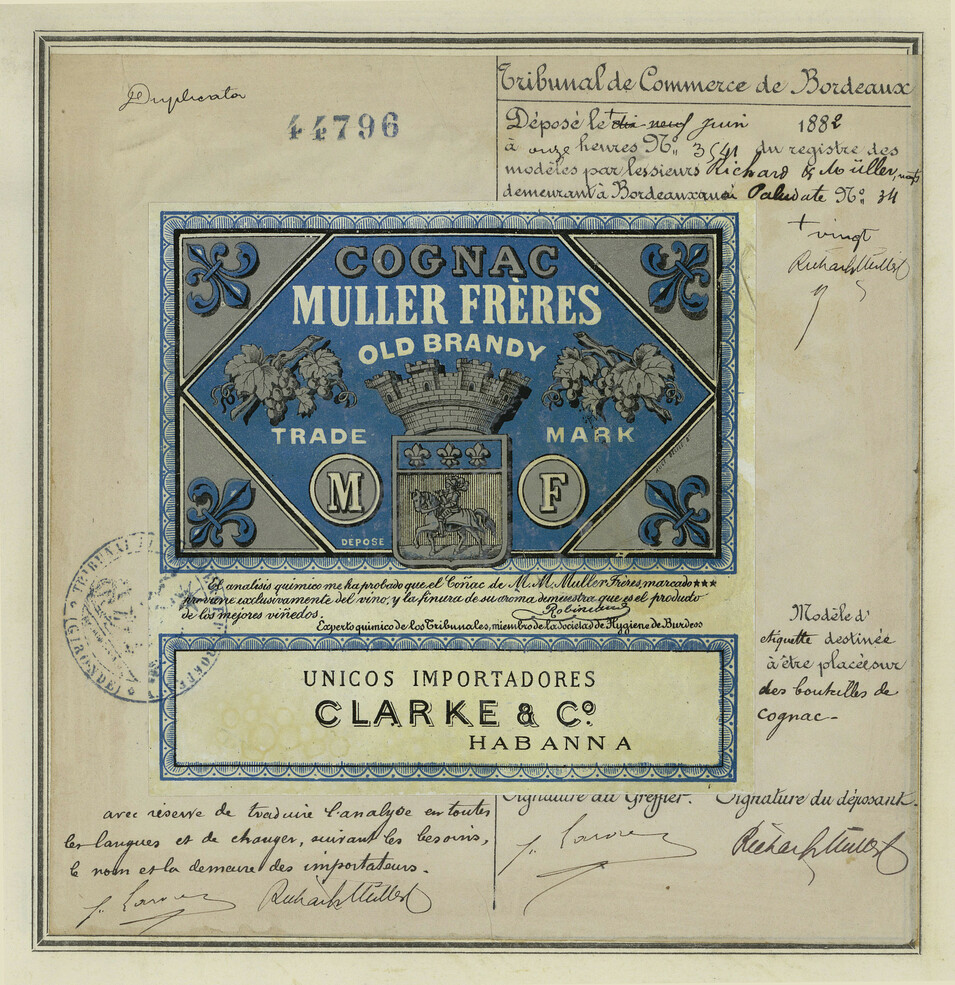 Duplicata
44796
Tribunal de Commerce de Bordeaux
Déposé le + dix neuf juin 1882
à onze heures No. 3541 du registre des
modèles par les sieurs Richard & Müller,
demeurant à Bordeaux quai Paludate No. 34
+ vingt
Richard & Müller
COGNAC
MULLER FRÈRES
OLD BRANDY
TRADE MARK
M F
DEPOSÉ
El analisis quimico me ha probado que el Coñac de M.M. Muller Frères, marcado ***
proviene exclusivamente del vino, y la finura de su aroma demuestra que es el producto
de los mejores viñedos. Robineaud
Experto quimico de los Tribunales, miembro de la Sociedad de Hygiene de Burdeos
UNICOS IMPORTADORES
CLARKE & Co.
HABANNA
TRIBUNAL
(GIRONDE)
Modèle d'
étiquette destinée
à être placée sur
des bouteilles de
cognac-
Signature du Greffier. Signature du déposant.
Richard & Müller
avec réserve de traduire l'analyse en toutes
les langues et de changer, suivant les besoins,
le nom et la demeure des importateurs.
Richard & Müller